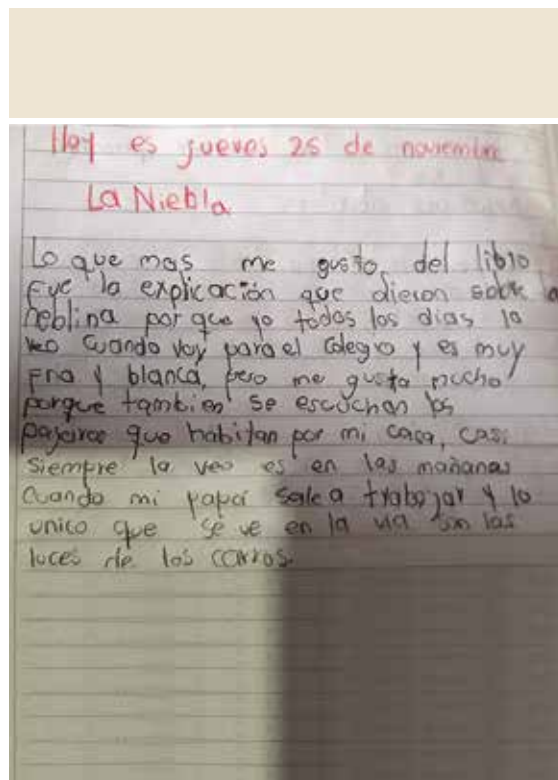 Hoy es jueves 25 de noviembre
La Niebla
Lo que mas me gusto, del libro
Fue la explicación que dieron sobre la
neblina por que yo todos los dias la
veo cuando voy para el colegio y es muy
fria y blanca, pero me gusta mucho
porque tambien se escuchan los
pajaros que habitan por mi casa, casi
siempre la veo es en las mañanas
cuando mi papá sale a trabajar y lo
unico que se ve en la via son las
luces de los carros.